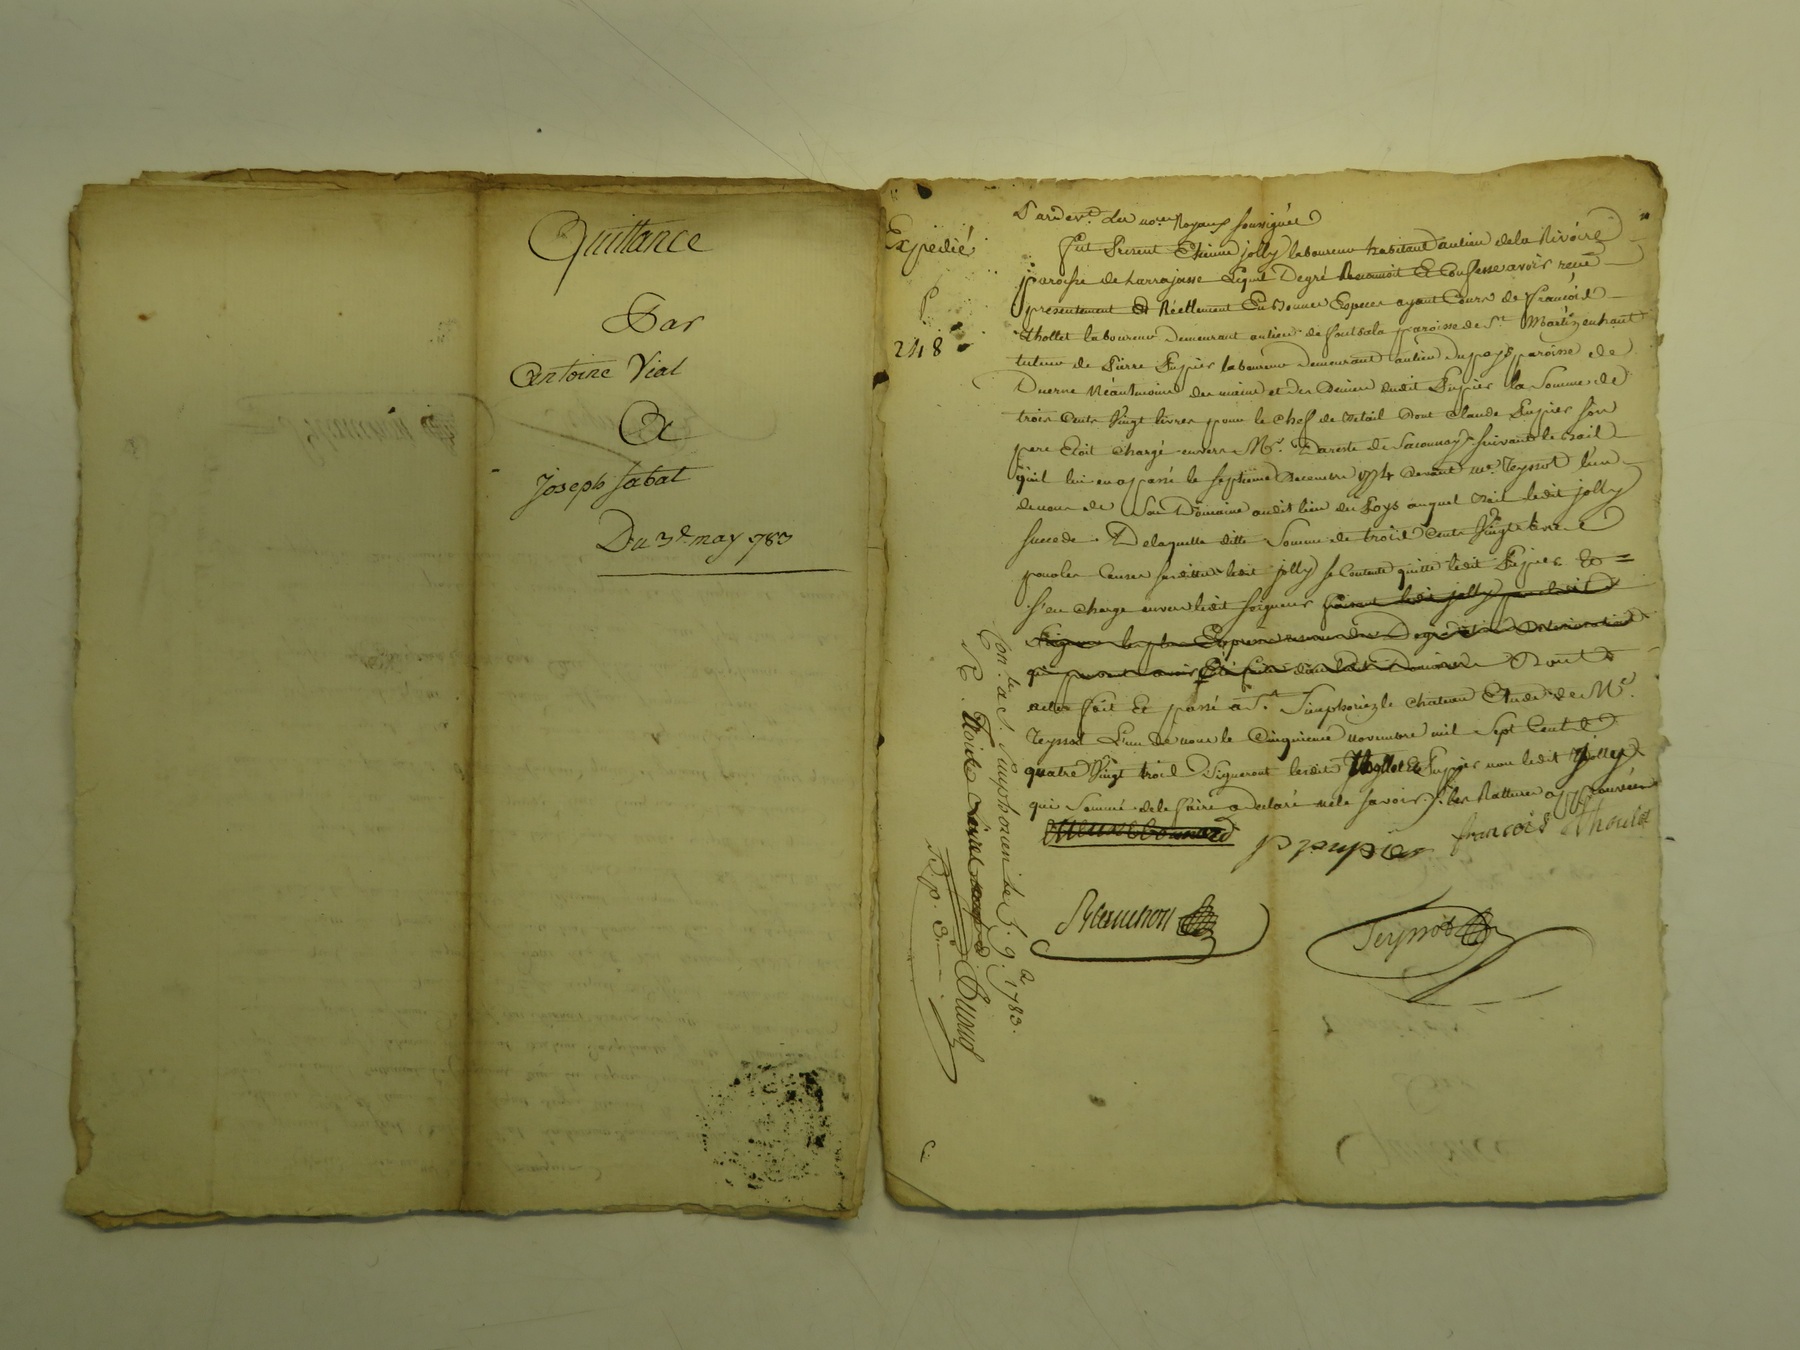 Quittance
Par
Antoine Vial
A
Joseph Sabat
Du 3e may 783
Expedié
P
248
Pardevt. les nores. Royaux soussignés
fut présent Etienne jolly laboureur habitant au lieu de la Rivoire
paroisse de Larrajasse Lequel De gré Reconnoit Et Confesse avoir recu
presentement et Réellement En bonnes Especes ayant Cours de francois
thollet laboureur Demeurant au lieu de fontbala paroisse de St. Martin en haut
tuteur de Pierre Pupier laboureur demeurant au lieu Du pays paroisse de
Duerne Néantmoins des mains et des deniers dudit Pupier la Somme de
trois Cents Vingt livres pour le Chef de betail Dont Claude Pupier son
pere Etoit Chargé envers Mr. Dareste de Saconnay suivant le bail
quil lui en a passé le septieme Decembre 1774 devant me. Teyssot l'un
de nous de Son Domaine audit lieu du Pays auquel bail ledit jolly
succede. De laquelle ditte Somme de trois Cents Vingt livres
pour les Causes susdittes ledit jolly se Contente quitte ledit Pupier Et =
s'en charge envers ledit seigneur ledit jolly
qui peuvent avoir Eté Dont
acte fait Et passé à St. Simphorien le chateau Etude de Me.
Teyssot L'un de nous le Cinquieme novembre mil Sept Cent
quatre Vingt trois Signeront lesdits thollet Et Pupier non ledit Jolly
qui Sommé de le faire a declaré ne le savoir les Rattures approuvées
p pupier francois thoulet
Teyssot
Con. lé a S. Simphorien le 5. 9. 1783.
R. trois Livres